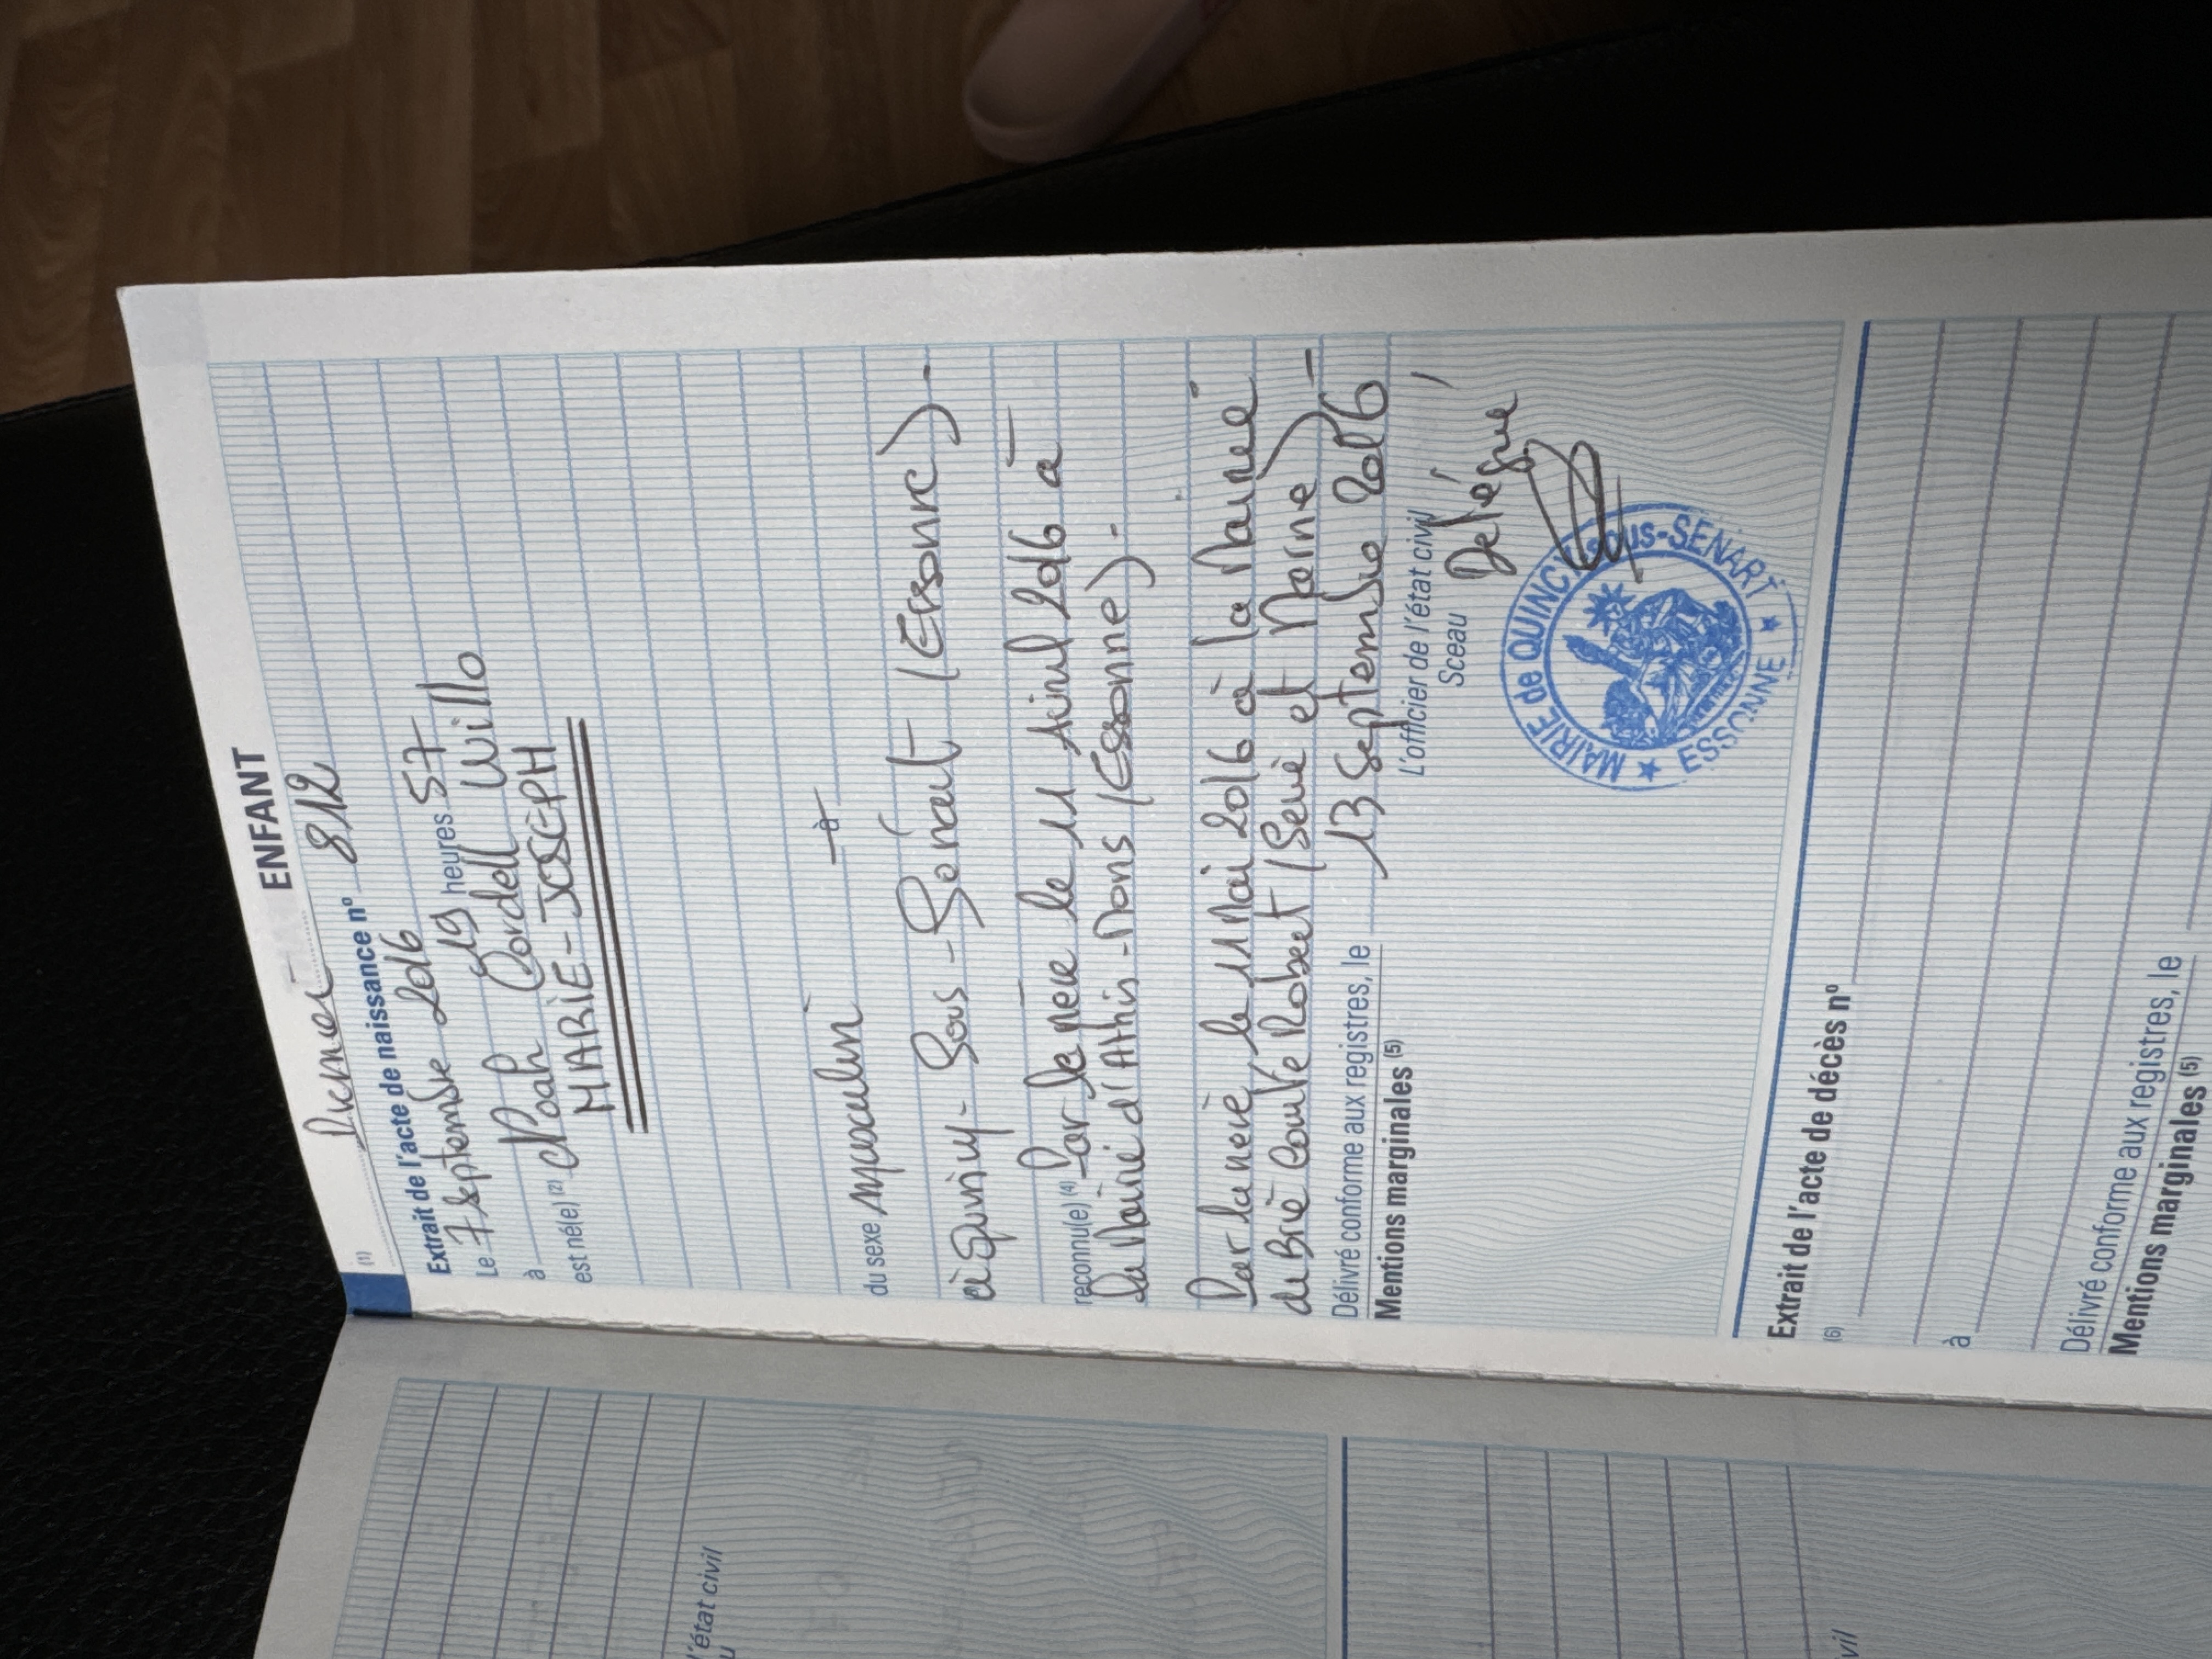 ENFANT
(1) Premier
Extrait de l'acte de naissance nº 812
Le 7 septembre 2016
à 19 heures 57
est né(e) (2) Noah Cordell Willo
MARIE-JOSEPH
à
du sexe masculin
à Quincy-Sous-Sénart (Essonne)-
reconnu(e) (4) Par le père le 11 Avril 2016 à
la Mairie d'Athis-Mons (Essonne).-
Par la mère le 11 Mai 2016 à la Mairie
de Brie Comte Robert (Seine et Marne)-
Délivré conforme aux registres, le 13 Septembre 2016
Mentions marginales (5)
L'officier de l'état civil
Sceau
Délégué
MAIRIE de QUINCY-SOUS-SENART
ESSONNE
Extrait de l'acte de décès nº
(6)
à
Délivré conforme aux registres, le
Mentions marginales (5)
l'état civil